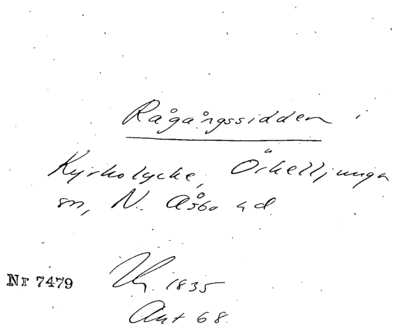 Rågångssidden i
Kyrkolycke, Örkelljunga
sn, N. Åsbo hd.
Nr 7479
1835
Ant 68.